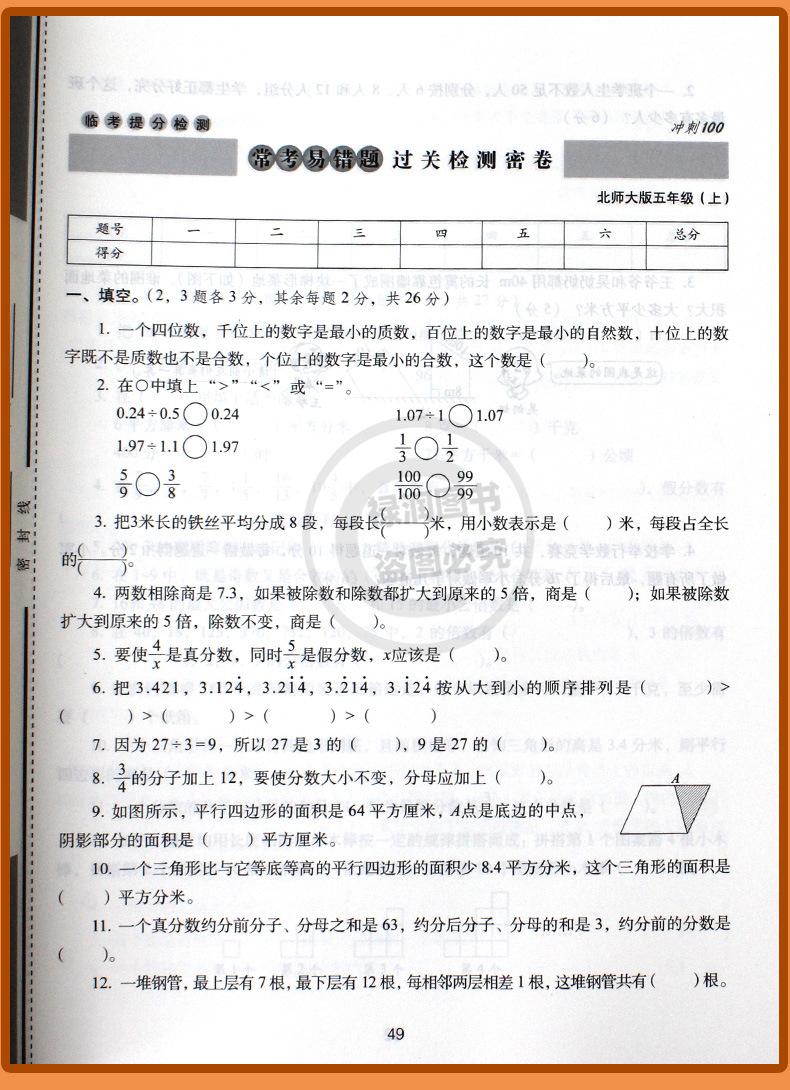 临考提分检测
冲刺100
常考易错题 过关检测密卷
北师大版五年级(上)
题号 一 二 三 四 五 六 总分
得分
一、填空。(2,3题各3分,其余每题2分,共26分)
1. 一个四位数,千位上的数字是最小的质数,百位上的数字是最小的自然数,十位上的数
字既不是质数也不是合数,个位上的数字是最小的合数,这个数是( )。
2. 在○中填上“>”“<”或“=”。
0.24÷0.5○0.24 1.07÷1○1.07
1.97÷1.1○1.97 1/3○1/2
5/9○3/8 100/100○99/99
3. 把3米长的铁丝平均分成8段,每段长( )/( )米,用小数表示是( )米,每段占全长
的( )/( )。
4. 两数相除商是7.3,如果被除数和除数都扩大到原来的5倍,商是( );如果被除数
扩大到原来的5倍,除数不变,商是( )。
5. 要使4/x是真分数,同时5/x是假分数,x应该是( )。
6. 把3.421,3.124̇,3.2̇1̇4̇,3.2̇14̇,3.1̇24̇按从大到小的顺序排列是( )>
( )>( )>( )>( )
7. 因为27÷3=9,所以27是3的( ),9是27的( )。
8. 3/4的分子加上12,要使分数大小不变,分母应加上( )。
9. 如图所示,平行四边形的面积是64平方厘米,A点是底边的中点,
A
阴影部分的面积是( )平方厘米。
10. 一个三角形比与它等底等高的平行四边形的面积少8.4平方分米,这个三角形的面积是
( )平方分米。
11. 一个真分数约分前分子、分母之和是63,约分后分子、分母的和是3,约分前的分数是
( )。
12. 一堆钢管,最上层有7根,最下层有12根,每相邻两层相差1根,这堆钢管共有( )根。
49
密封线
绿润图书
盗图必究